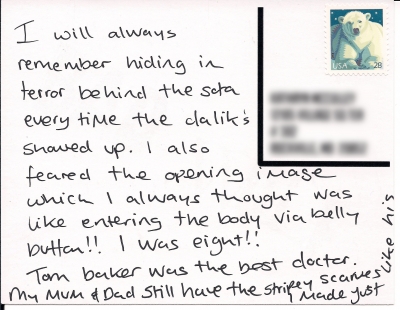 I will always
remember hiding in
terror behind the sofa
every time the dalik's
showed up. I also
feared the opening image
which I always thought was
like entering the body via belly
button!! I was eight!!
Tom baker was the best doctor.
My Mum & Dad still have the stripey scarves
made just
like his
USA 28